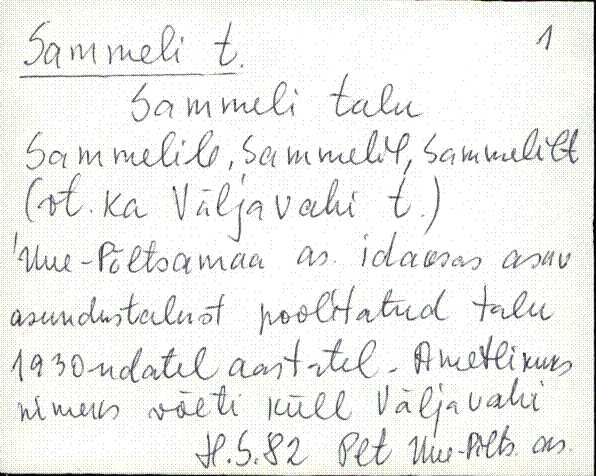 Sammeli t. 1
Sammeli talu
Sammelile, Sammelil, Sammelilt
(vt. ka Väljavahi t.)
Uue-Põltsamaa as. idaosas asuv
asundustalust poolitatud talu
1930-ndatel aastatel. Ametlikuks
nimeks võeti küll Väljavahi
H.S.82 Plt Uue-Põlts. as.